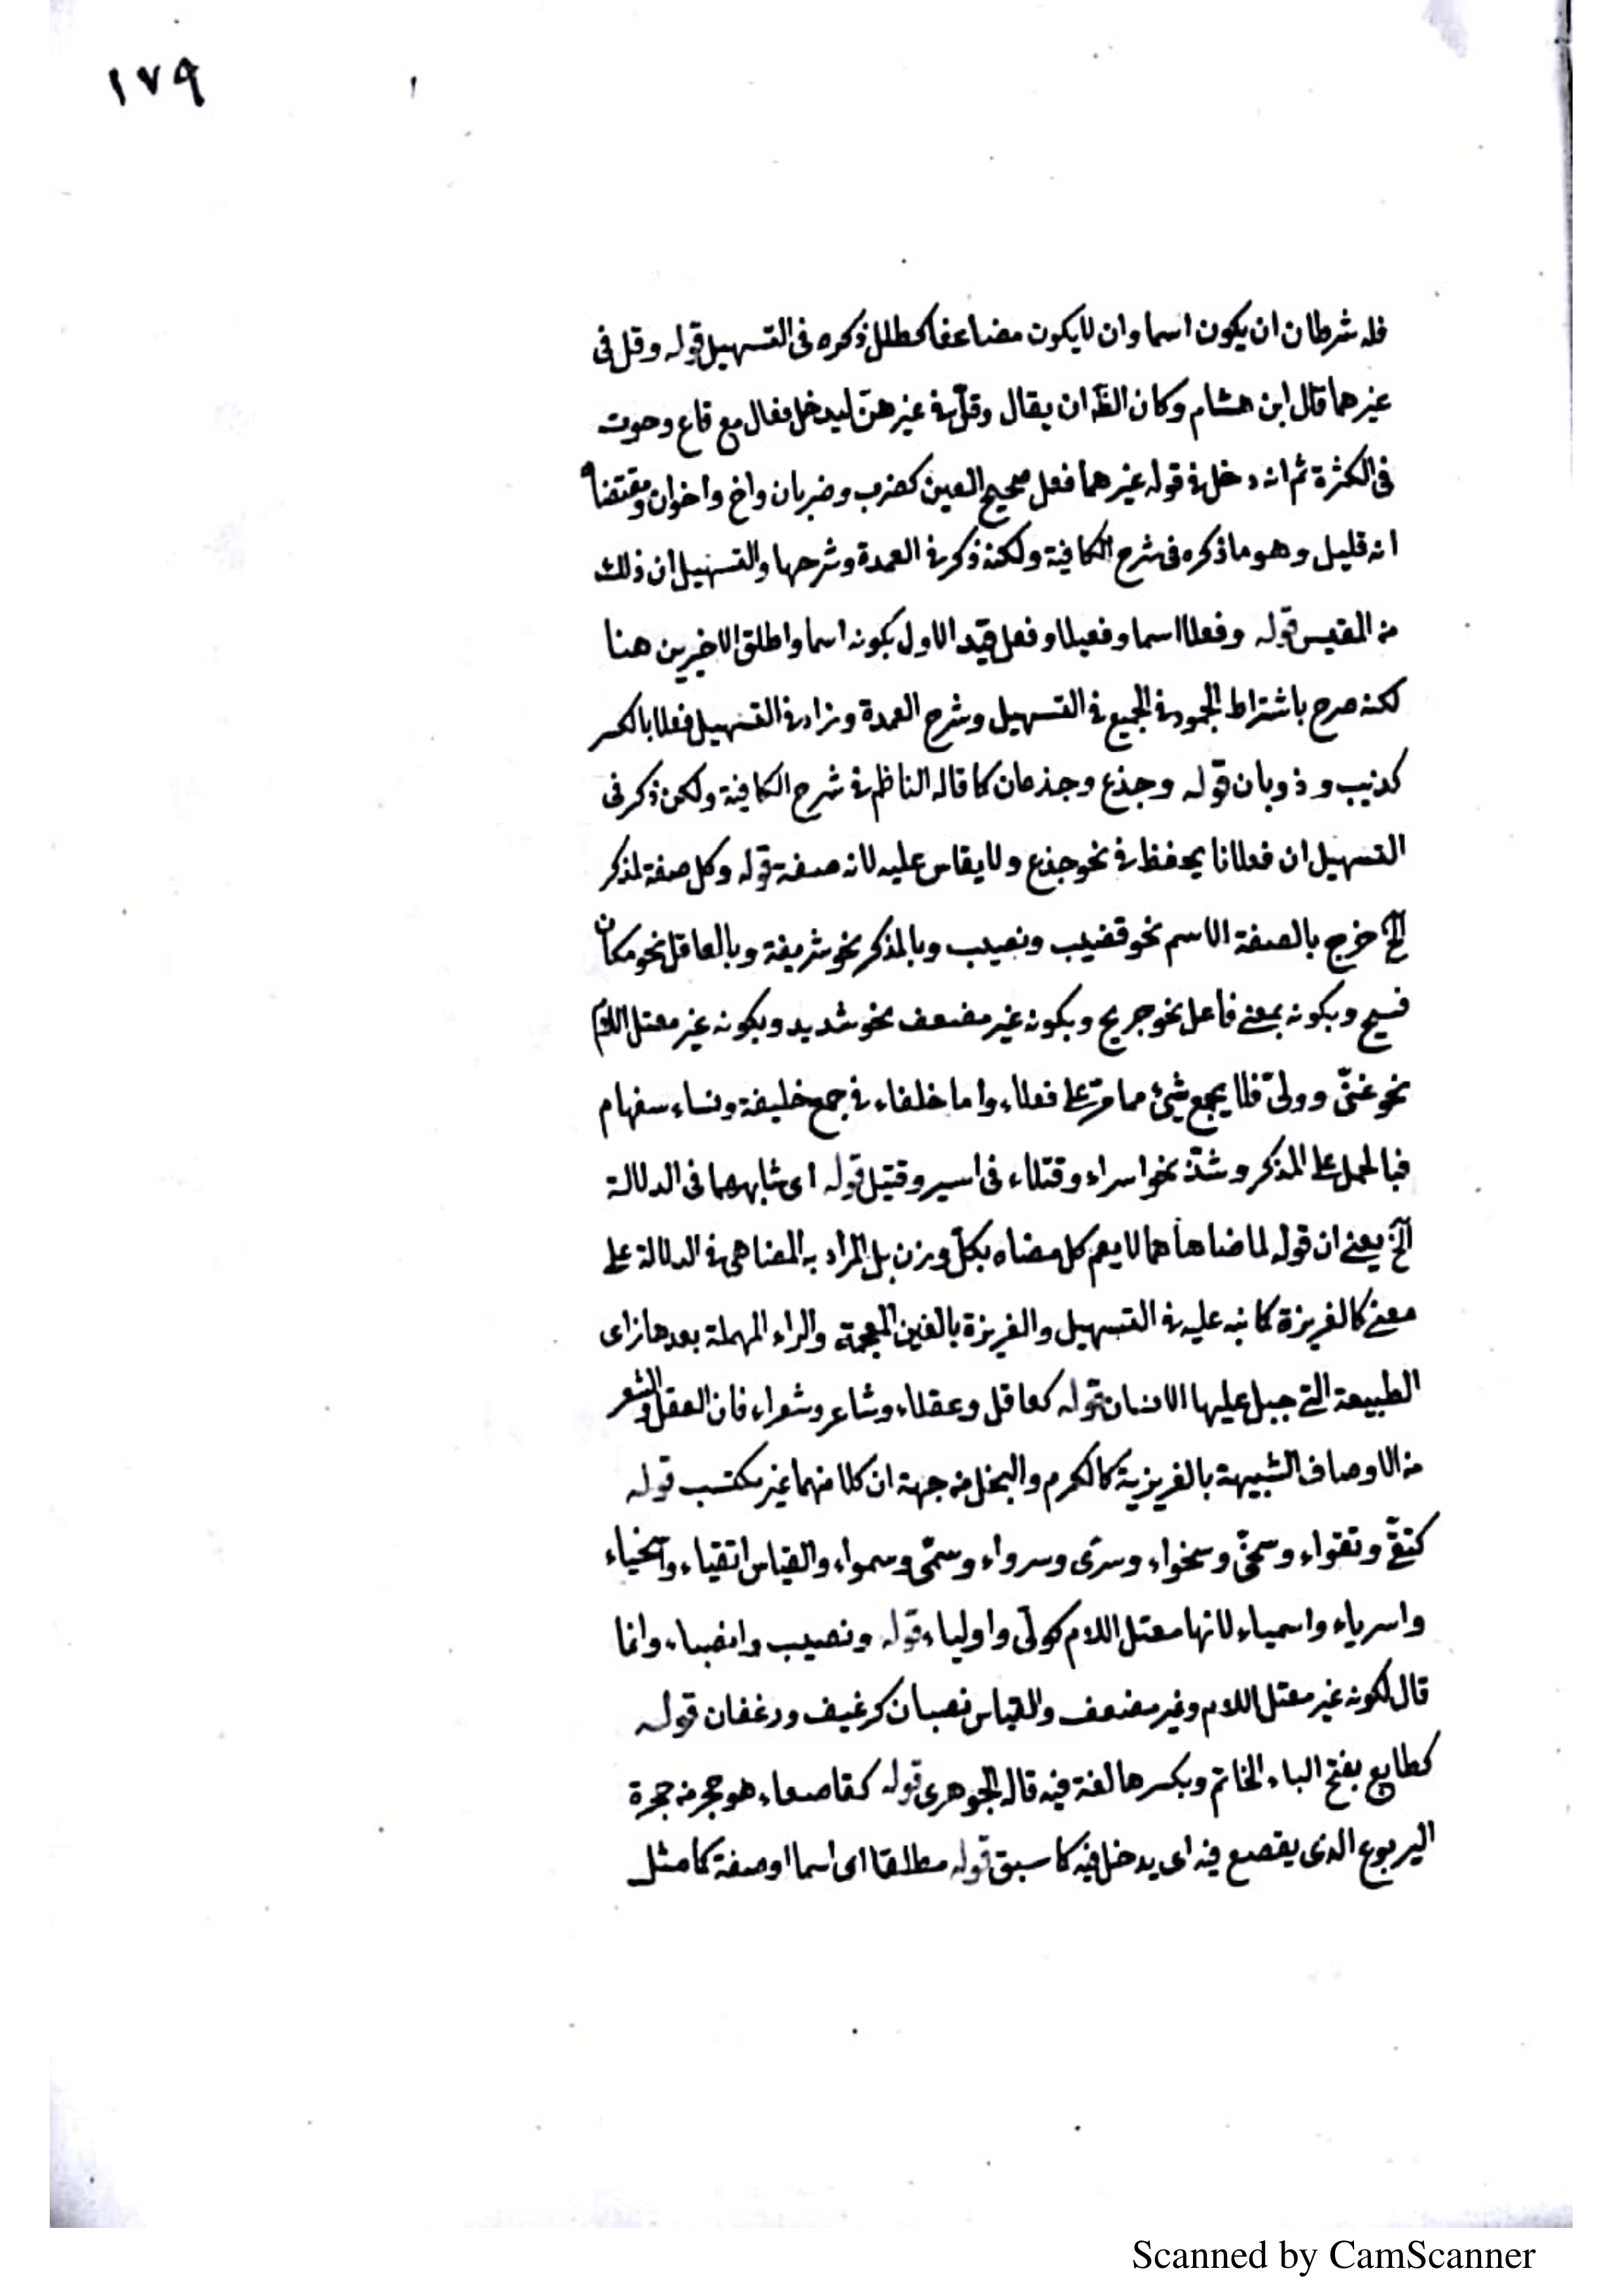 ١٧٩
فله شرطان ان يكون اسما وان لا يكون مضاعفا كطلل ذكره فى التسهيل قوله وقل فى
غيرهما قال ابن هشام وكان الظ ان يقال وقلّ فى غيرهنّ ليدخل فعال مع قاع وحوت
فى الكثرة ثم انه دخل فى قوله غيرهما فعل صحيح العين كضرب وضربان واخ واخوان ومقتضاه
انه قليل وهو ما ذكره فى شرح الكافية ولكنه ذكر فى العمدة وشرحها والتسهيل ان ذلك
من المقيس قوله وفعلا اسما وفعيلا وفعل قيد الاول بكونه اسما واطلق الاخيرين هنا
لكنه صرح باشتراط الجمود فى الجميع فى التسهيل وشرح العمدة وزاد فى التسهيل فعلا بالكسر
كذيب وذوبان قوله وجذع وجذعان كما قاله الناظم فى شرح الكافية ولكن ذكر فى
التسهيل ان فعلانا يحفظ فى نحو جذع ولا يقاس عليه لانه صفة قوله وكل صفة لمذكر
الخ خرج بالصفة الاسم نحو قضيب ونصيب وبالمذكر نحو شريفة وبالعاقل نحو مكان
فسيح وبكونه بمعنى فاعل نحو جريح وبكونه غير مضعف نحو شديد وبكونه غير معتل اللام
نحو غنىّ وولىّ فلا يجمع شئ مما مرّ على فعلاء واما خلفاء فى جمع خليفة ونساء سفهاء م
فبالحمل على المذكر وشذّ نحو اسراء وقتلاء فى اسير وقتيل قوله اى شابههما فى الدلالة
الخ يعنى ان قوله لما ضاهاهما لا يعم كل مضاه بكل وزن بل المراد به المضاهى فى الدلالة على
معنى كالغريزة كما نبه عليه فى التسهيل والغريزة بالغين المعجمة والراء المهملة بعدها زاى
الطبيعة التى جبل عليها الانسان قوله كعاقل وعقلاء وشاعر وشعراء فان العقل والشعر
من الاوصاف الشبيهة بالغريزية كالكرم والبخل من جهة ان كلا منهما غير مكتسب قوله
كتقىّ وتقواء وسخىّ وسخواء وسرى وسرواء وسمّى وسمواء والقياس اتقياء واسخياء
واسرياء واسمياء لانها معتل اللام كولّى واولياء قوله ونصيب وانصباء وانما
قال لكونه غير معتل اللام وغير مضعف والقياس نصبان كرغيف ورغفان قوله
كطابع بفتح الباء الخاتم وبكسرها لغة فيه قاله الجوهرى قوله كقاصعاء هو حجر من حجرة
اليربوع الذى يقصع فيه اى يدخل فيه كما سبق قوله مطلقا اى اسما او صفة كما مثل
Scanned by CamScanner